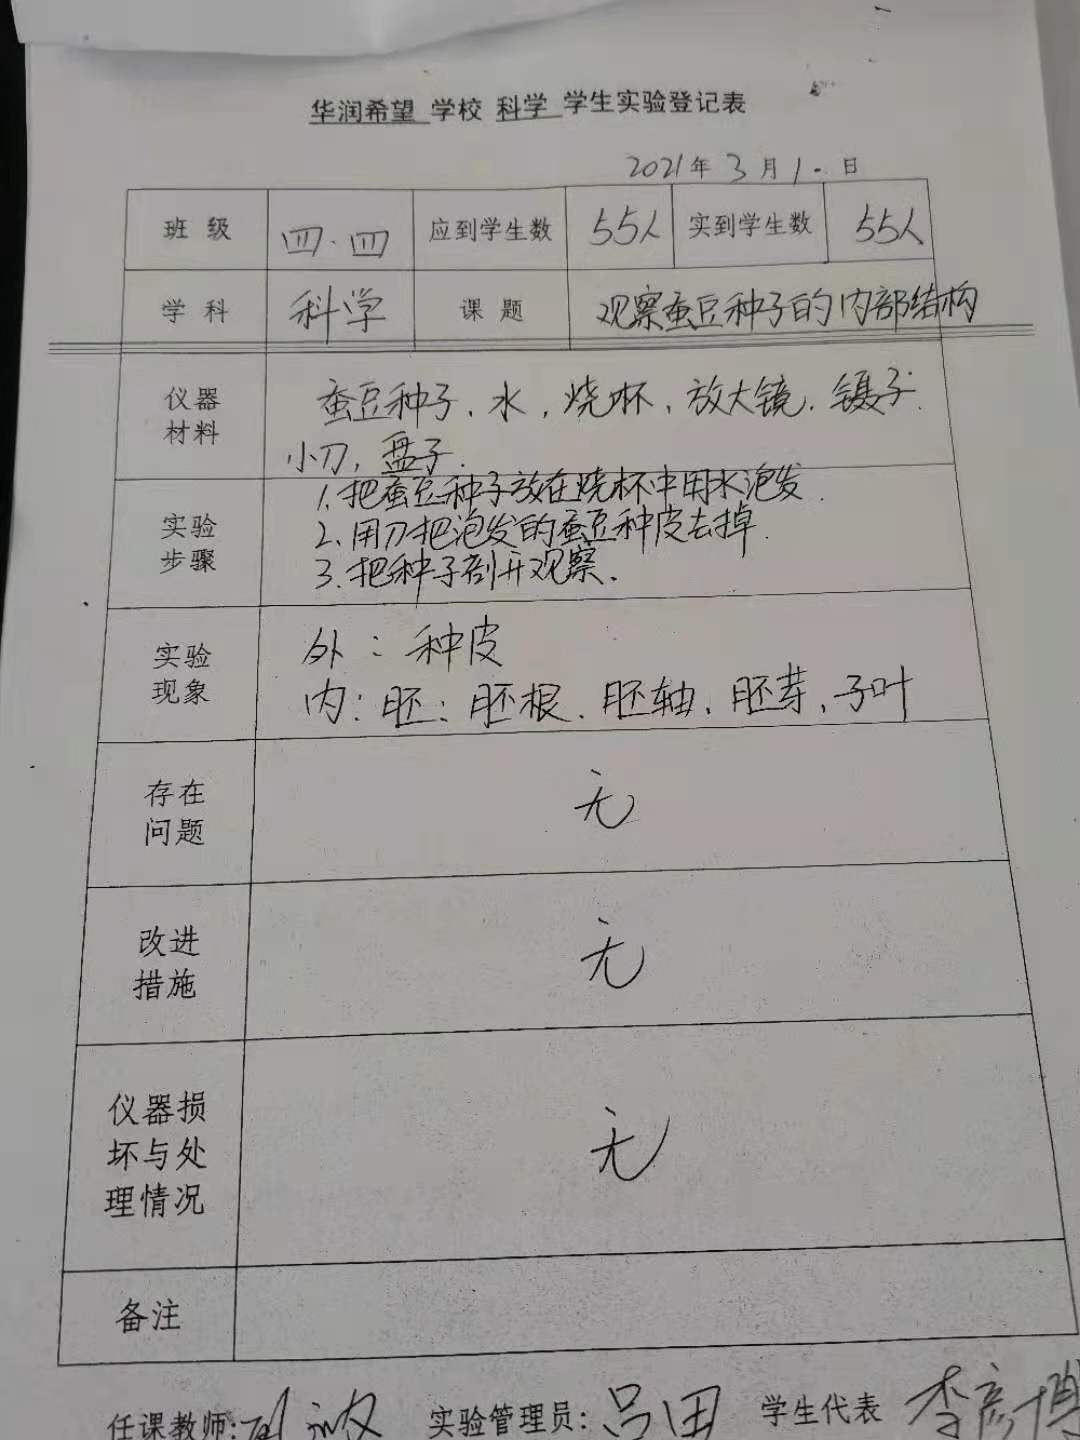 华润希望 学校 科学 学生实验登记表
2021年 3月1.日
班 级 四.四 应到学生数 55人 实到学生数 55人
学 科 科学 课 题 观察蚕豆种子的内部结构
仪器材料 蚕豆种子、水,烧杯,放大镜.镊子.
小刀,盘子.
实验步骤 1.把蚕豆种子放在烧杯中用水泡发.
2.用刀把泡发的蚕豆种皮去掉.
3.把种子剖开观察.
实验现象 外:种皮
内:胚:胚根.胚轴、胚芽、子叶
存在问题 无
改进措施 无
仪器损坏与处理情况 无
备注
任课教师: 实验管理员:吕田 学生代表 李彦博